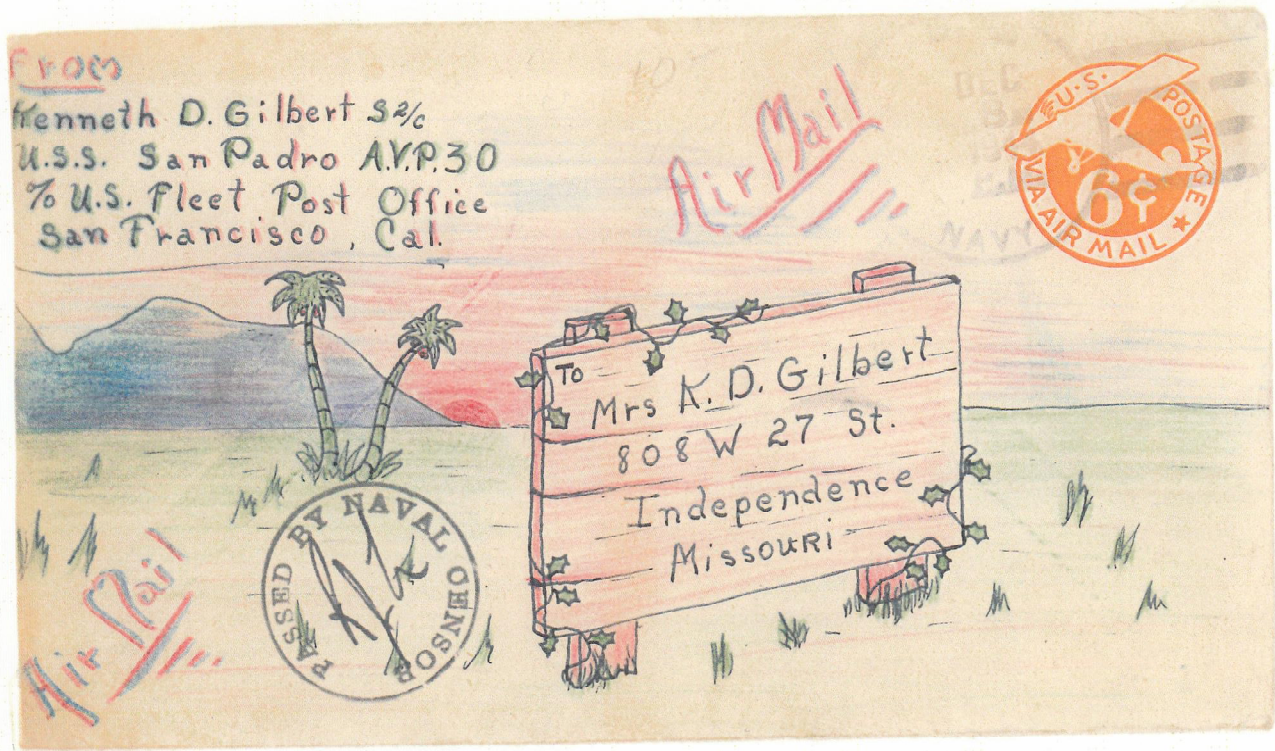 From
Kenneth D. Gilbert S2/c
U.S.S. San Padro A.V.P. 30
℅ U.S. Fleet Post Office
San Francisco, Cal.
Air Mail
DEC
NAVY
U.S. POSTAGE
VIA AIR MAIL
6¢
To
Mrs K. D. Gilbert
808 W 27 St.
Independence
Missouri
PASSED BY NAVAL CENSOR
Air Mail